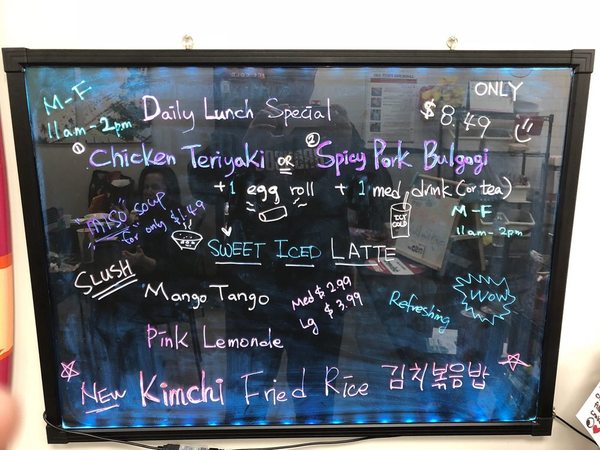 M-F
11am-2pm
Daily Lunch Special
ONLY
$8.49
① Chicken Teriyaki OR ② Spicy Pork Bulgogi
+1 egg roll + 1 med. drink (or tea)
M-F
11am-2pm
"MISO" soup
for only $1.49
ICY
COLD
SWEET ICED LATTE
SLUSH
Mango Tango
Med $2.99
Lg $3.99
Refreshing
WOW
Pink Lemonade
NEW Kimchi Fried Rice 김치볶음밥